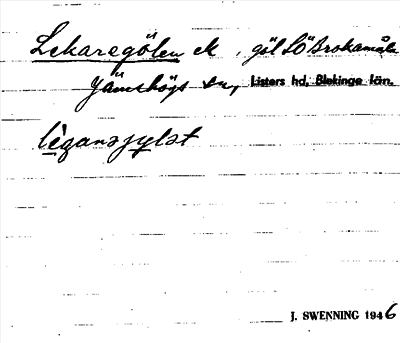 Lekaregölen el , göl SÖ Brokamåla
Jämshögs sn, Listers hd, Blekinge län.
J. SWENNING 1946